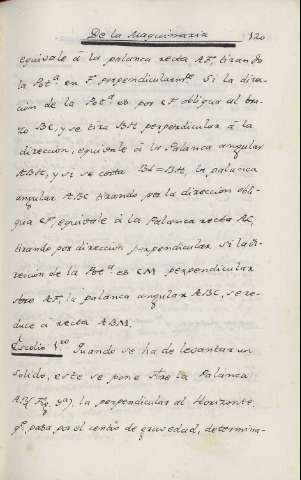 De la Maquinaria 120
equivale à la palanca recta AF, tirando
la Pot.ª en F perpendicularm.te Si la direc-
ción de la Pot.ª es por CF obliqua al bra-
zo BC, y se tira BH perpendicular à la
dirección, equivale à la Palanca angular
ABH, y si se corta BL=BH, la palanca
angular ABC tirando por la dirección obli-
qua CF, equivale à la Palanca recta AL
tirando por dirección perpendicular. Si la di-
rección de la Pot.ª es CM perpendicular
sbre AF, la palanca angular ABC, se re-
duce à recta ABM.
Escolio 1.º Quando se ha de levantar un
solido, este se pone sbre la Palanca
AB (Fig. 9ª), la perpendicular al Horizonte,
q.e pasa por el centro de gravedad, determina-